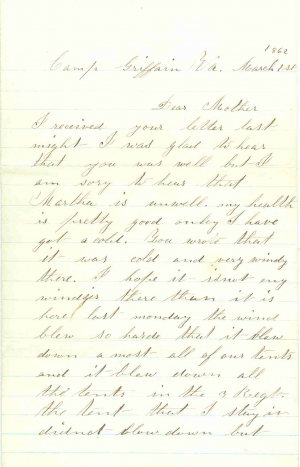 1862
Camp Griffain Va. March 1st
Dear Mother
I received your letter last
night I was glad to hear
that you was well but I
am sory to hear that
Martha is unwell. my health
is pretty good onley I have
got a cold. You wrote that
it was cold and very windy
there. I hope it is not any
windyer there than it is
here last monday the wind
blew so harde that it blew
down a most all of our tents
and it blew down all
the tents in the 3 Regt.
the tent that I stay in
did not blow down but